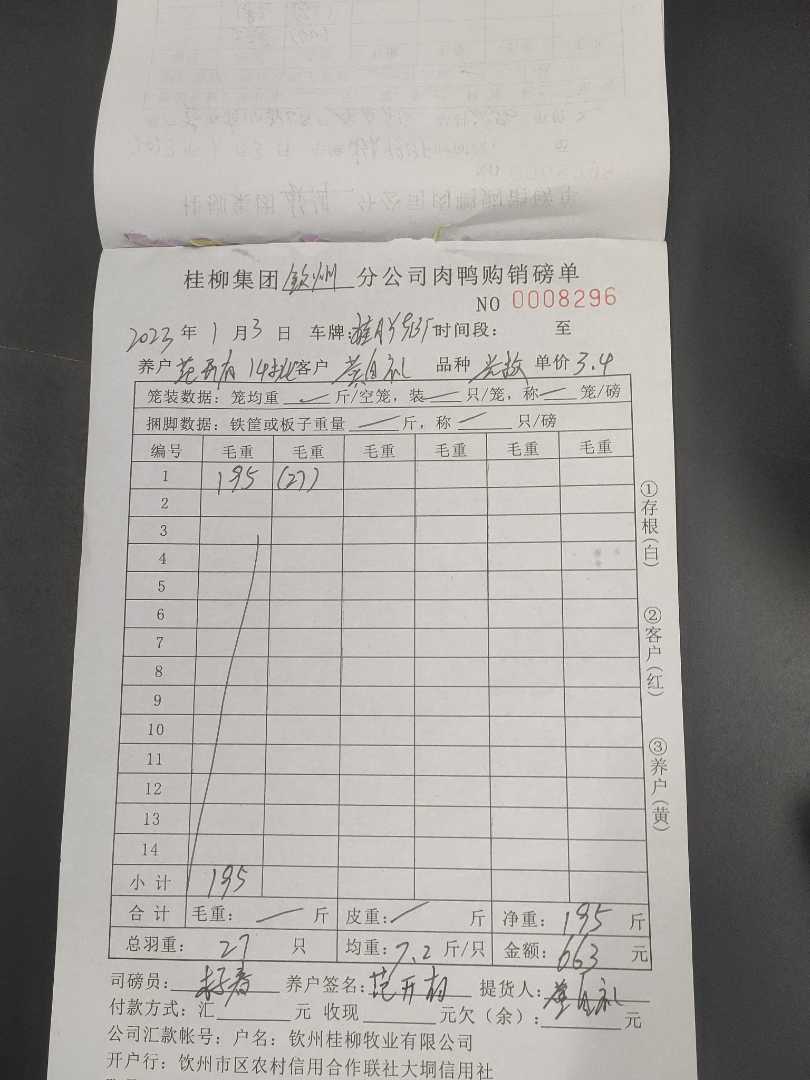 桂柳集团钦州分公司肉鸭购销磅单
NO 0008296
2023年1月3日 车牌: 时间段: 至
养户 14批客户 黄自礼 品种 单价3.4
笼装数据: 笼均重 斤/空笼, 装 只/笼, 称 笼/磅
捆脚数据: 铁筐或板子重量 斤, 称 只/磅
编号 毛重 毛重 毛重 毛重 毛重 毛重
1 195 (27)
2
3
4
5
6
7
8
9
10
11
12
13
14
小计 195
合计 毛重: 斤 皮重: 斤 净重: 195 斤
总羽重: 27 只 均重: 7.2 斤/只 金额: 663 元
司磅员: 养户签名: 提货人: 黄自礼
付款方式: 汇 元 收现 元欠(余): 元
公司汇款帐号: 户名: 钦州桂柳牧业有限公司
开户行: 钦州市区农村信用合作联社大垌信用社
①存根(白)
②客户(红)
③养户(黄)